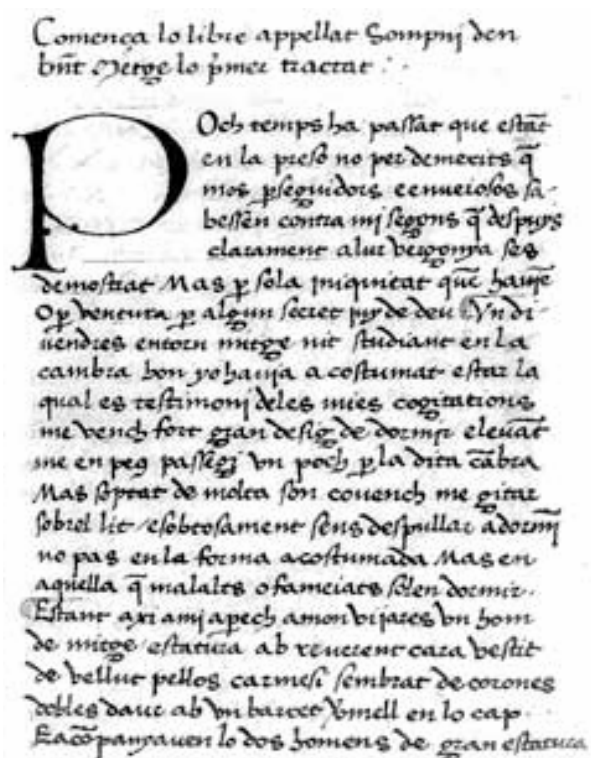 Comença lo libre appellat Sompnj den
bñt Metge lo p̃mer tractat ·
Poch temps ha passat que estãt
en la preso no per demerits q̃
mos p̱seguidors e enueiosos sa-
bessen contra mi segons q̃ despuys
clarament a lur vergonya ses
demostrat Mas p̱ sola jniquitat que
O p̱ ventura p̱ algun secret juy de deu Vn di-
uendres entorn mitge nit studiant en la
cambra hon yo hauja acostumat estar la
qual es testimoni deles mies cogitations
me vench fort gran desig de dormir e leuãt
me en peus passegi vn poch p̱ la dita cãbra
Mas soptat de molta son couench me gitar
sobrel lit e sobtosament sens despullar adormj̃
no pas en la forma acostumada Mas en
aquella q̃ malalts o fameiats solen dormir ·
Estant axi a mj aparech a mon vijares vn hom
de mitge estatura ab reuerent cara vestit
de vellut pellos carmesi sembrat de corones
dobles daur ab vn barret v̱mell en lo cap ·
E acõpanyauen lo dos homens de gran estatura